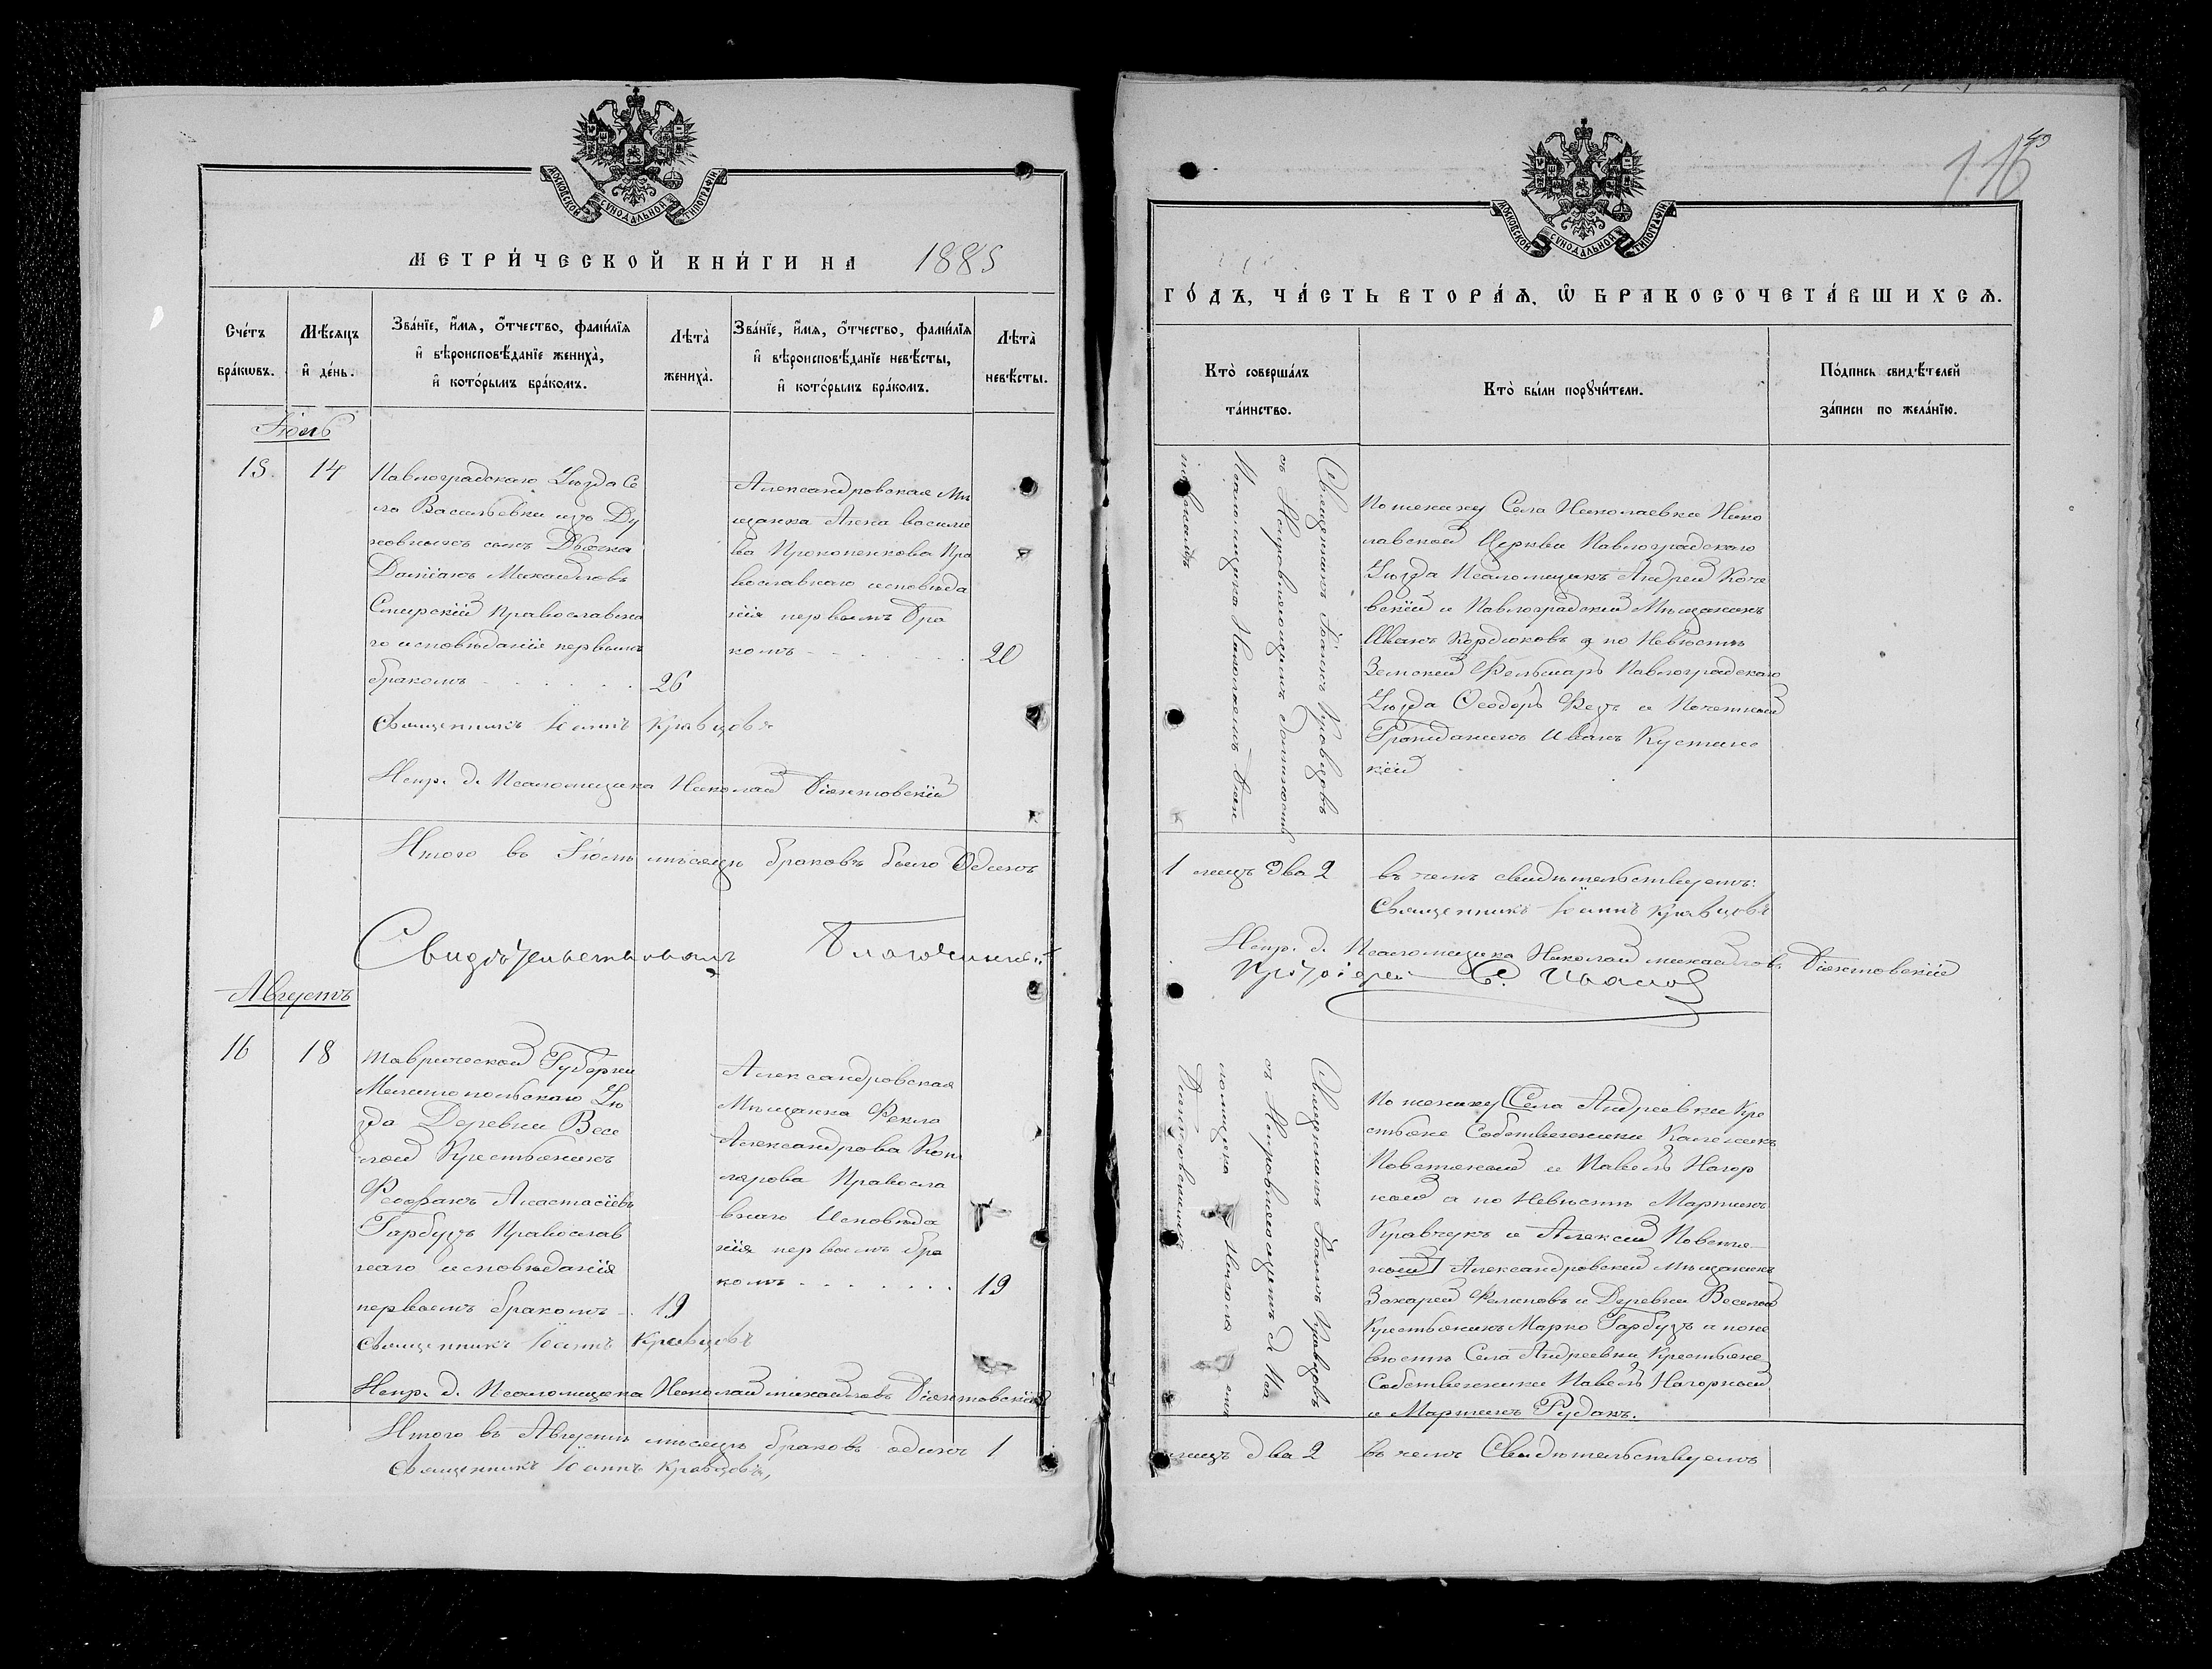 МОСКОВСКОЙ СѴНОДАЛЬНОЙ ТИПОГРАФІИ
МЕТРИ́ЧЕСКОЙ КНИ́ГИ НА 1885
Сче́тъ бра́ковъ.
Мѣ́сяцъ и де́нь.
Зва́нїе, и́мя, ѻ҆́тчество, фами́лїя
и҆ вѣроисповѣ́данїе жениха̀,
и҆ кото́рымъ бра́комъ.
Лѣта̀ жениха̀.
Зва́нїе, и́мя, ѻ҆́тчество, фами́лїя
и҆ вѣроисповѣ́данїе невѣ́сты,
и҆ кото́рымъ бра́комъ.
Лѣта̀ невѣ́сты.
Іюль
15. 14
Павлоградскаго Уѣзда Се
ла Васильевки изъ Ду
ховныхъ сынъ Дьячка
Даміанъ Михайловъ
Смирскій Православна
го исповѣданія первымъ
бракомъ
26
Александровская Мѣ
щанка Анна Василье
ва Прокопенкова Пра
вославнаго исповѣда
нія первымъ бра
комъ
20
Священникъ Іоаннъ Кравцовъ
Испр. д. Псаломщика Николай Діянтовскій
Итого въ Іюлѣ мѣсяцѣ браковъ было Одинъ
Свидѣтельствовалъ Благочинный
Августъ
16 18
Таврической Губерніи
Мелитопольскаго Уѣ
зда Деревни Весе
лой Крестьянинъ
Феофанъ Анастасіевъ
Гарбузъ Православ
наго исповѣданія
первымъ бракомъ
19
Александровская
Мѣщанка Фекла
Александрова Кот
лярова Правосла
внаго Исповѣда
нія первымъ бра
комъ
19
Священникъ Іоаннъ Кравцовъ
Испр. д. Псаломщика Николай Михайловъ Діянтовскій
Итого въ Августѣ мѣсяцѣ браковъ одинъ 1
Священникъ Іоаннъ Кравцовъ,
116
МОСКОВСКОЙ СѴНОДАЛЬНОЙ ТИПОГРАФІИ
ГО́ДЪ, ЧА́СТЬ ВТОРА́Я, Ѡ БРАКОСОЧЕТА́ВШИХСЯ.
Кто̀ соверша́лъ
та́инство.
Кто̀ бы́ли порꙋчи́тели.
По́дпись свидѣ́телей
за́писи по жела́нїю.
Священникъ Іоаннъ Кравцовъ
съ Исправляющимъ должность
Псаломщика Николаемъ Діян
товскимъ
По жениху Села Николаевки Нико
лавской Церкви Павлоградскаго
Уѣзда Псаломщикъ Андрей Коче
вскій и Павлоградский Мѣщанинъ
Иванъ Кордюковъ а по Невѣстѣ
Земский Фельшаръ Павлоградскаго
Уѣзда Ѳеодоръ Фезъ и Почетный
Гражданинъ Иванъ Кустине
кій
1 лицъ два 2 въ чемъ свидѣтельствуемъ:
Священникъ Іоаннъ Кравцовъ
Испр. д. Псаломщика Николай Михайловъ Діянтовскій
Протоіерей С. Ивановъ
Священникъ Іоаннъ Кравцовъ
съ Исправляющимъ д Пса
ломщика Никола емъ
Діянтовскимъ
По жениху Села Андреевки Кре
стьяне Собственники
Повстяной и Павелъ Нагор
ной а по Невѣстѣ Мартинъ
Кравчукъ и Алексий Повстя
ной Александровский Мѣщанинъ
Захарей Филиповъ и Деревни Веселой
Крестьянинъ Марко Гарбузъ а по не
вѣстѣ Села Андреевки Крестьяне
Собственники Павелъ Нагорный
и Мартинъ Рудакъ.
лицъ два 2 въ чемъ Свидѣтельствуемъ